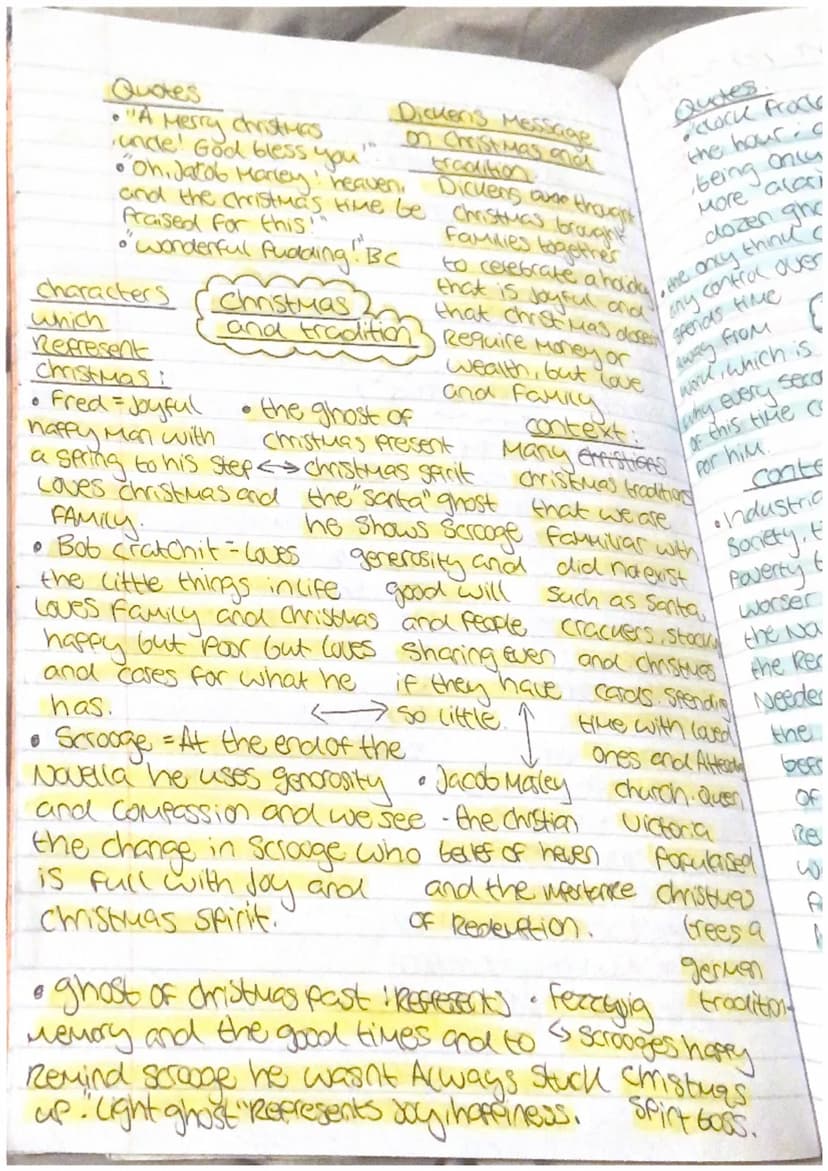 Quotes
• "A Merry christmas
uncle! God bless you"
• "Oh, Jacob Marley! heaven,
and the christmas time be
Praised for this!"
• "wonderful Pudding!" BC
Dickens Message
on Christmas and
tradition.
Dickens thought
christmas brought
families together
to celebrate a holiday
that is Joyful and
that christmas doesn't
Require Money or
wealth, but love
and family
christmas
and tradition
characters
which
Represent
christmas:
• Fred = Joyful
happy Man with
a spring to his step
Loves christmas and
FAMILY.
• Bob cratchit - Loves
the little things in life
Loves family and christmas
happy but Poor but Loves
and cares for what he
has.
• Scrooge = At the end of the
Novella he uses generosity
and compassion and we see
the change in scrooge who
is full with Joy and
christmas spirit.
• the ghost of
christmas present
↔ christmas spirit
the "santa" ghost
he shows scrooge
generosity and
good will
and People
sharing even
if they have
↔ so little.
• Jacob Marley
- the christian
belief of heven
and the importance
of Redemption.
context:
Many christians
christmas traditions
that we are
familiar with
did not exist
such as santa
crackers, stock
and christmas
carols. spending
time with loved
ones and Attend
church. Queen
Victoria
Populised
christmas
trees a
german
tradition
• ghost of christmas past: Represents
memory and the good times and to
Remind scrooge he wasnt Always stuck
up. "Light ghost" Represents Joy, happiness.
• Fezzywig
↳ scrooges happy
christmas
spirit boss.
Quotes
the hour:
being only
More
dozen
• the only
any control over
spends time
away from
work, which is
why every
of this time
for him.
• Industria
society,
Poverty
worser
the
the
Needed
the
of